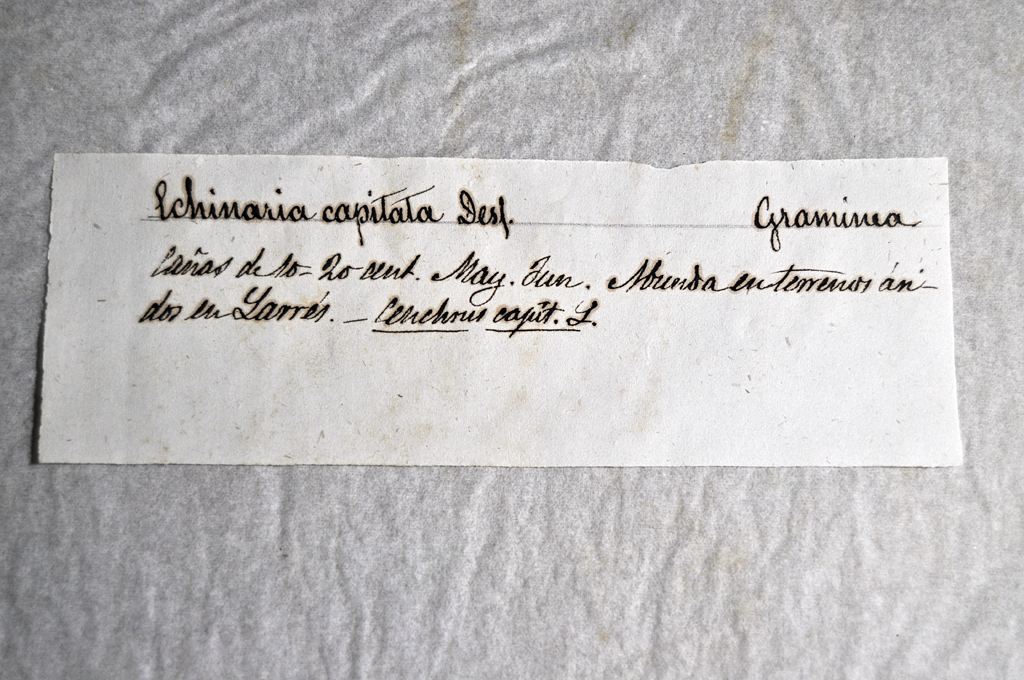 Echinaria capitata Desf. Graminea
Cañas de 10-20 cent. May. Jun. Abunda en terrenos ári-
dos en Larrés. — Cenchrus capit. L.